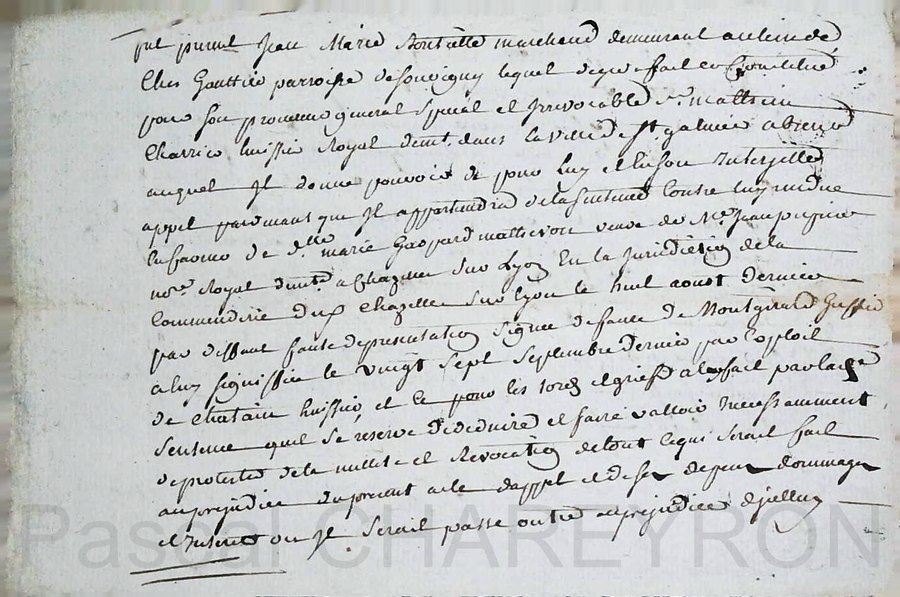 fut present Jean Marie montelle marchand demeurant au lieu de
Chez Gauttier parroisse de souvigny lequel de gre fait et Constitue
pour son procureur general special et Irrevocable Sr mattieu
Charrier huissier Royal demt. dans la ville de St galmier
auquel Il donne pouvoir de pour luy et en son
appel pardevant que Il appartiendra de la sentence Contre luy rendue
en faveur de dlle marie Gaspard matthevon veuve de Me Jean
nore Royal demte a Chazelles sur Lyon En la Jurisdiction de la
Commenderie dud Chazelles sur Lyon le huit aoust dernier
par deffaut faute de presentation signee defarge de Montgirard Greffier
a luy signiffiee le vingt sept septembre dernier par Exploit
de Chatain huissier, et ce pour les torts et griefs a luy fait par laditte
sentence quil se reserve de deduire et faire valloir Incessamment
de protester de la nullite et Revocation de tout ce qui serait fait
au prejudice du present acte dappel et de tous depens dommages
et Interets ou Il serait passe outre au prejudice dicelluy
Pascal CHAREYRON